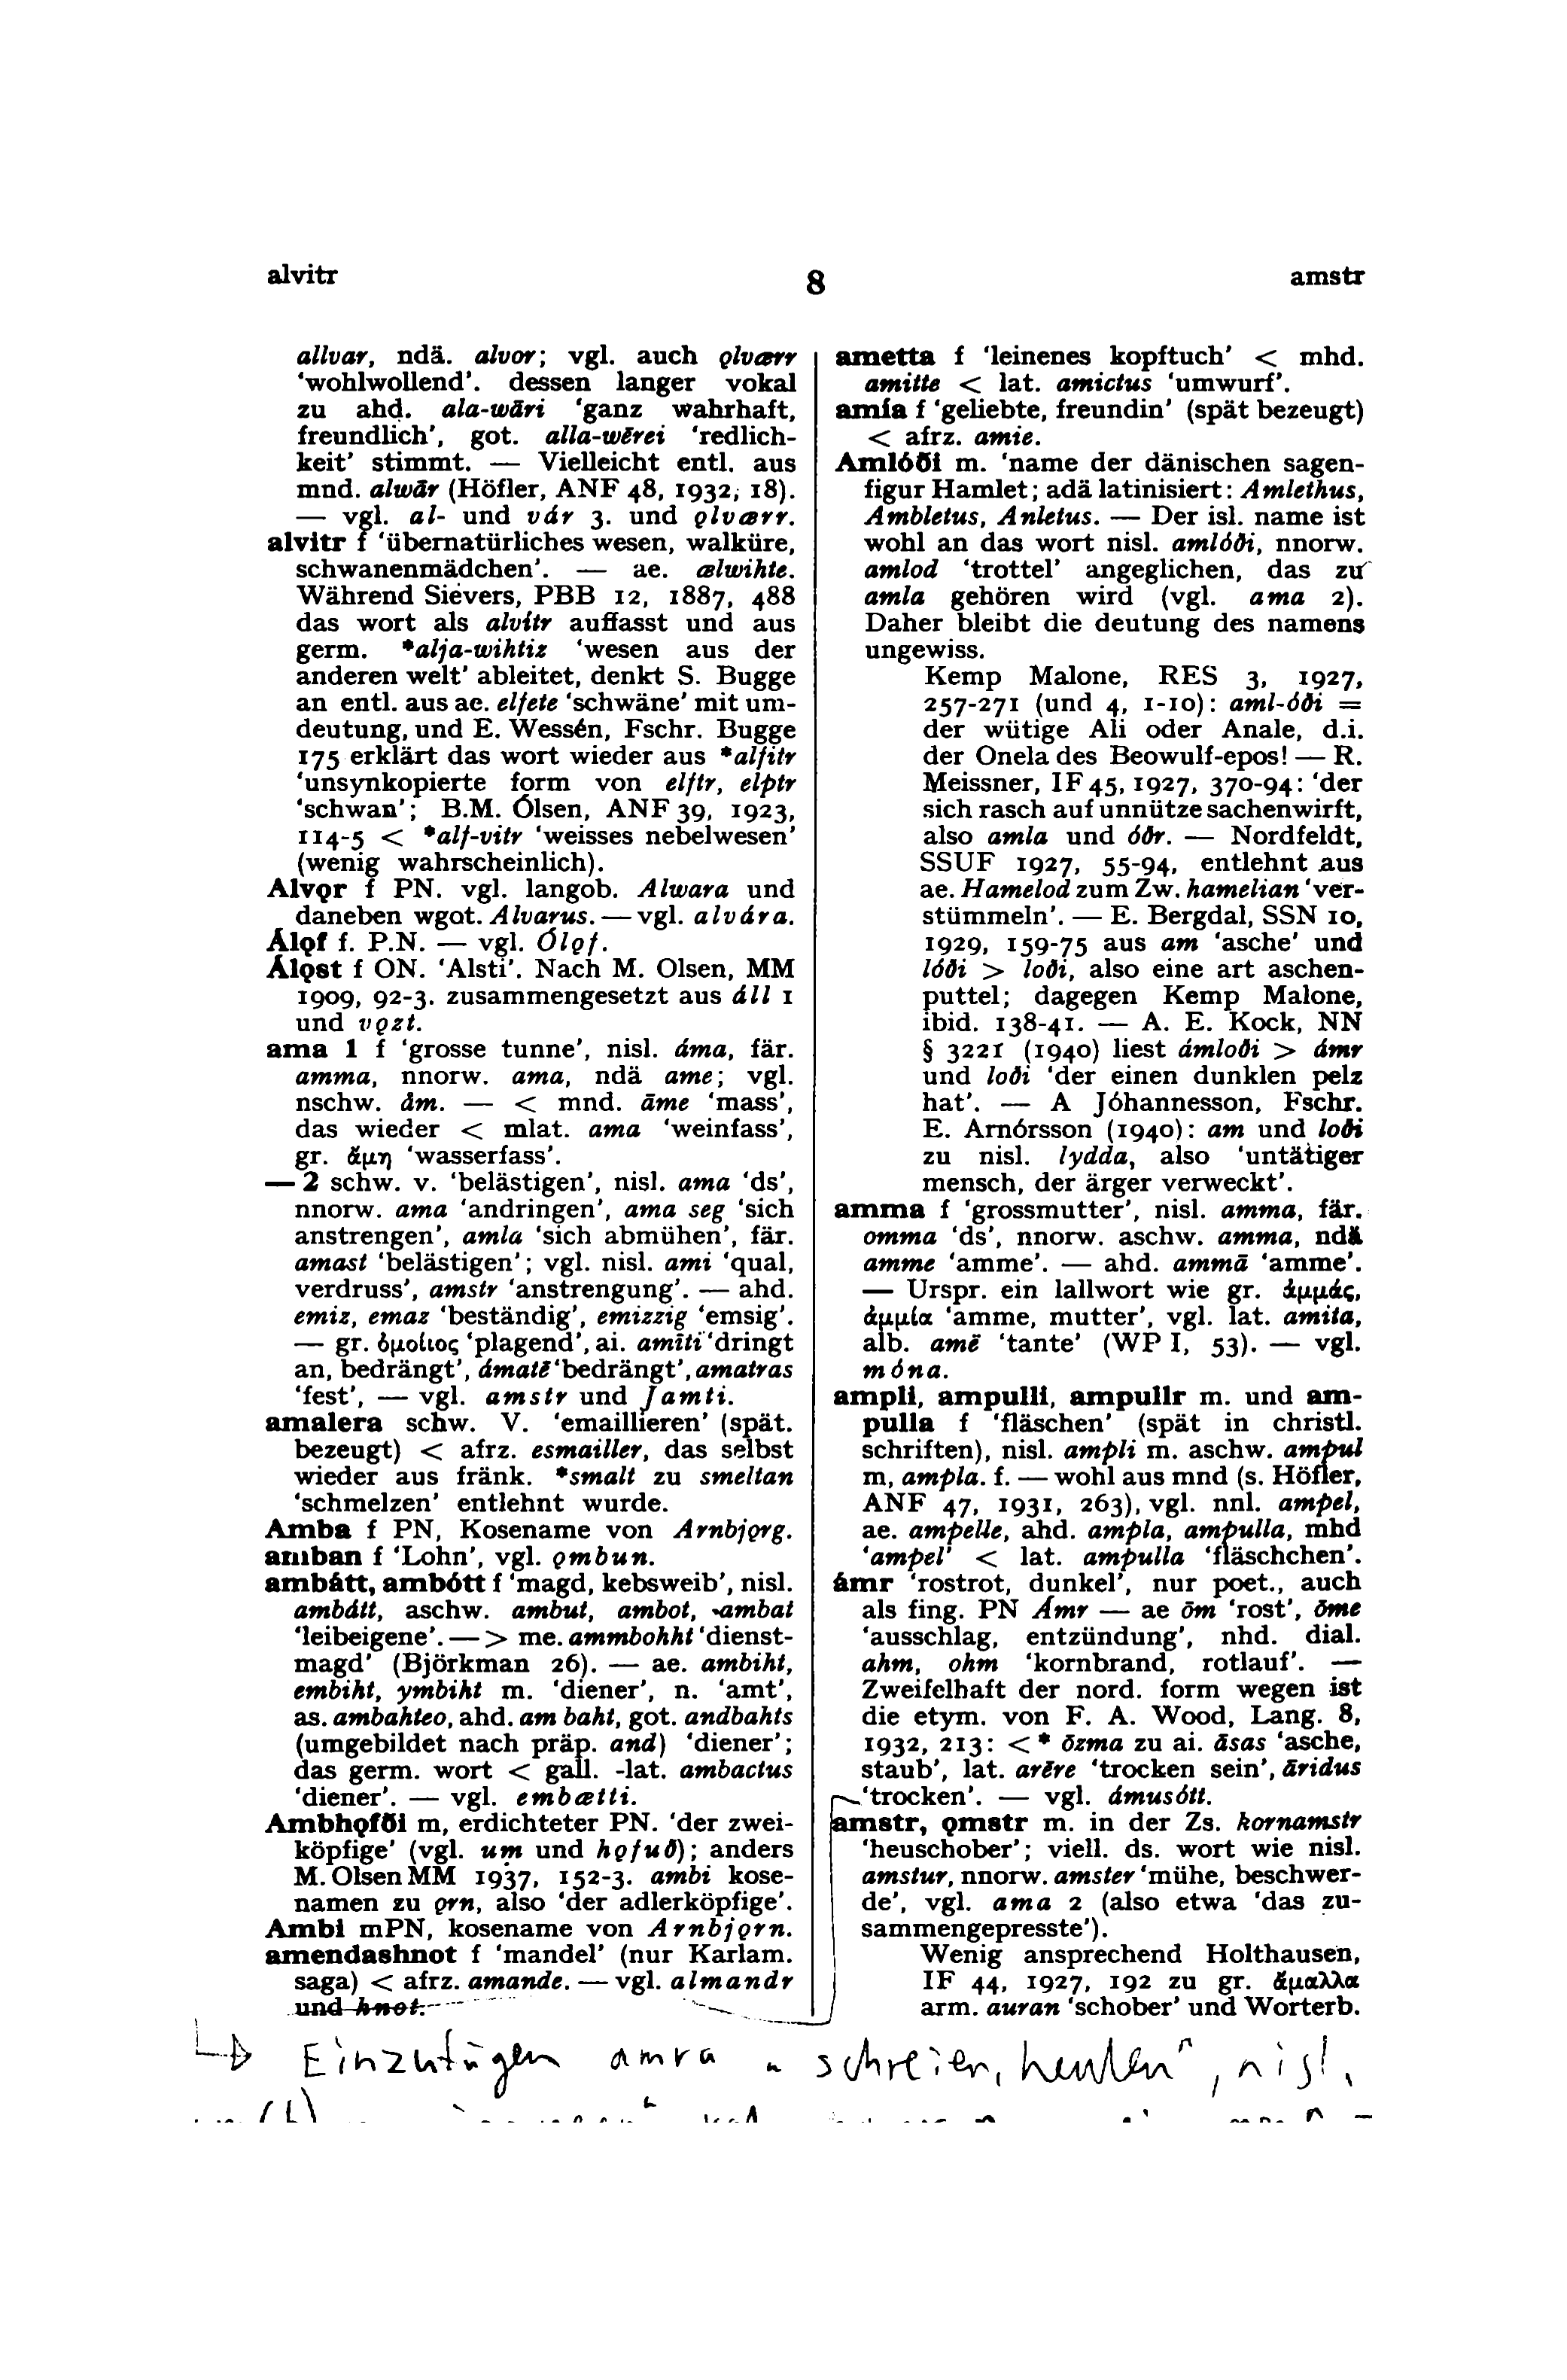 alvitr
8
amstr
allvar, ndä. alvor; vgl. auch ǫlværr
‘wohlwollend’. dessen langer vokal
zu ahd. ala-wāri ‘ganz wahrhaft,
freundlich’, got. alla-wērei ‘redlich-
keit’ stimmt. — Vielleicht entl. aus
mnd. alwār (Höfler, ANF 48, 1932, 18).
— vgl. al- und vár 3. und ǫlværr.
alvitr f ‘übernatürliches wesen, walküre,
schwanenmädchen’. — ae. ælwihte.
Während Sievers, PBB 12, 1887, 488
das wort als alvítr auffasst und aus
germ. *alja-wihtiz ‘wesen aus der
anderen welt’ ableitet, denkt S. Bugge
an entl. aus ae. elfete ‘schwäne’ mit um-
deutung, und E. Wessén, Fschr. Bugge
175 erklärt das wort wieder aus *alfitr
‘unsynkopierte form von elftr, elptr
‘schwan’; B.M. Ólsen, ANF 39, 1923,
114-5 < *alf-vitr ‘weisses nebelwesen’
(wenig wahrscheinlich).
Alvǫr f PN. vgl. langob. Alwara und
daneben wgot. Alvarus. — vgl. alvára.
Álǫf f. P.N. — vgl. Ólǫf.
Álǫst f ON. ‘Alsti’. Nach M. Olsen, MM
1909, 92-3. zusammengesetzt aus áll 1
und vǫzt.
ama 1 f ‘grosse tunne’, nisl. áma, fär.
amma, nnorw. ama, ndä ame; vgl.
nschw. åm. — < mnd. āme ‘mass’,
das wieder < mlat. ama ‘weinfass’,
gr. ἄμη ‘wasserfass’.
— 2 schw. v. ‘belästigen’, nisl. ama ‘ds’,
nnorw. ama ‘andringen’, ama seg ‘sich
anstrengen’, amla ‘sich abmühen’, fär.
amast ‘belästigen’; vgl. nisl. ami ‘qual,
verdruss’, amstr ‘anstrengung’. — ahd.
emiz, emaz ‘beständig’, emizzig ‘emsig’.
— gr. ὁμοίιος ‘plagend’, ai. amīti ‘dringt
an, bedrängt’, ámatē ‘bedrängt’, amatras
‘fest’, — vgl. amstr und Jamti.
amalera schw. V. ‘emaillieren’ (spät.
bezeugt) < afrz. esmailler, das selbst
wieder aus fränk. *smalt zu smeltan
‘schmelzen’ entlehnt wurde.
Amba f PN, Kosename von Arnbjǫrg.
amban f ‘Lohn’, vgl. ǫmbun.
ambátt, ambótt f ‘magd, kebsweib’, nisl.
ambátt, aschw. ambut, ambot, -ambat
‘leibeigene’. — > me. ammbohht ‘dienst-
magd’ (Björkman 26). — ae. ambiht,
embiht, ymbiht m. ‘diener’, n. ‘amt’,
as. ambahteo, ahd. am baht, got. andbahts
(umgebildet nach präp. and) ‘diener’;
das germ. wort < gall. -lat. ambactus
‘diener’. — vgl. embætti.
Ambhǫfði m, erdichteter PN. ‘der zwei-
köpfige’ (vgl. um und hǫfuð); anders
M. Olsen MM 1937, 152-3. ambi kose-
namen zu ǫrn, also ‘der adlerköpfige’.
Ambi mPN, kosename von Arnbjǫrn.
amendashnot f ‘mandel’ (nur Karlam.
saga) < afrz. amande. — vgl. almandr
und hnot.
ametta f ‘leinenes kopftuch’ < mhd.
amitte < lat. amictus ‘umwurf’.
amía f ‘geliebte, freundin’ (spät bezeugt)
< afrz. amie.
Amlóði m. ‘name der dänischen sagen-
figur Hamlet; adä latinisiert: Amlethus,
Ambletus, Anletus. — Der isl. name ist
wohl an das wort nisl. amlóði, nnorw.
amlod ‘trottel’ angeglichen, das zu
amla gehören wird (vgl. ama 2).
Daher bleibt die deutung des namens
ungewiss.
Kemp Malone, RES 3, 1927,
257-271 (und 4, 1-10): aml-óði =
der wütige Ali oder Anale, d.i.
der Onela des Beowulf-epos! — R.
Meissner, IF 45, 1927, 370-94: ‘der
sich rasch auf unnütze sachen wirft,
also amla und óðr. — Nordfeldt,
SSUF 1927, 55-94, entlehnt aus
ae. Hamelod zum Zw. hamelian ‘ver-
stümmeln’. — E. Bergdal, SSN 10,
1929, 159-75 aus am ‘asche’ und
lóði > loði, also eine art aschen-
puttel; dagegen Kemp Malone,
ibid. 138-41. — A. E. Kock, NN
§ 3221 (1940) liest ámloði > ámr
und loði ‘der einen dunklen pelz
hat’. — A Jóhannesson, Fschr.
E. Arnórsson (1940): am und loði
zu nisl. lydda, also ‘untätiger
mensch, der ärger verweckt’.
amma f ‘grossmutter’, nisl. amma, fär.
omma ‘ds’, nnorw. aschw. amma, ndä
amme ‘amme’. — ahd. ammā ‘amme’.
— Urspr. ein lallwort wie gr. ἀμμάς,
ἀμμία ‘amme, mutter’, vgl. lat. amita,
alb. amë ‘tante’ (WP I, 53). — vgl.
móna.
ampli, ampulli, ampullr m. und am-
pulla f ‘fläschen’ (spät in christl.
schriften), nisl. ampli m. aschw. ampul
m, ampla. f. — wohl aus mnd (s. Höfler,
ANF 47, 1931, 263), vgl. nnl. ampel,
ae. ampelle, ahd. ampla, ampulla, mhd
‘ampel’ < lat. ampulla ‘fläschchen’.
ámr ‘rostrot, dunkel’, nur poet., auch
als fing. PN Ámr — ae ōm ‘rost’, ōme
‘ausschlag, entzündung’, nhd. dial.
ahm, ohm ‘kornbrand, rotlauf’. —
Zweifelhaft der nord. form wegen ist
die etym. von F. A. Wood, Lang. 8,
1932, 213: < * ōzma zu ai. āsas ‘asche,
staub’, lat. arēre ‘trocken sein’, āridus
‘trocken’. — vgl. ámusótt.
amstr, ǫmstr m. in der Zs. kornamstr
‘heuschober’; viell. ds. wort wie nisl.
amstur, nnorw. amster ‘mühe, beschwer-
de’, vgl. ama 2 (also etwa ‘das zu-
sammengepresste’).
Wenig ansprechend Holthausen,
IF 44, 1927, 192 zu gr. ἄμαλλα
arm. auran ‘schober’ und Worterb.
Einzufügen amra „ schreien, heulen", nisl.